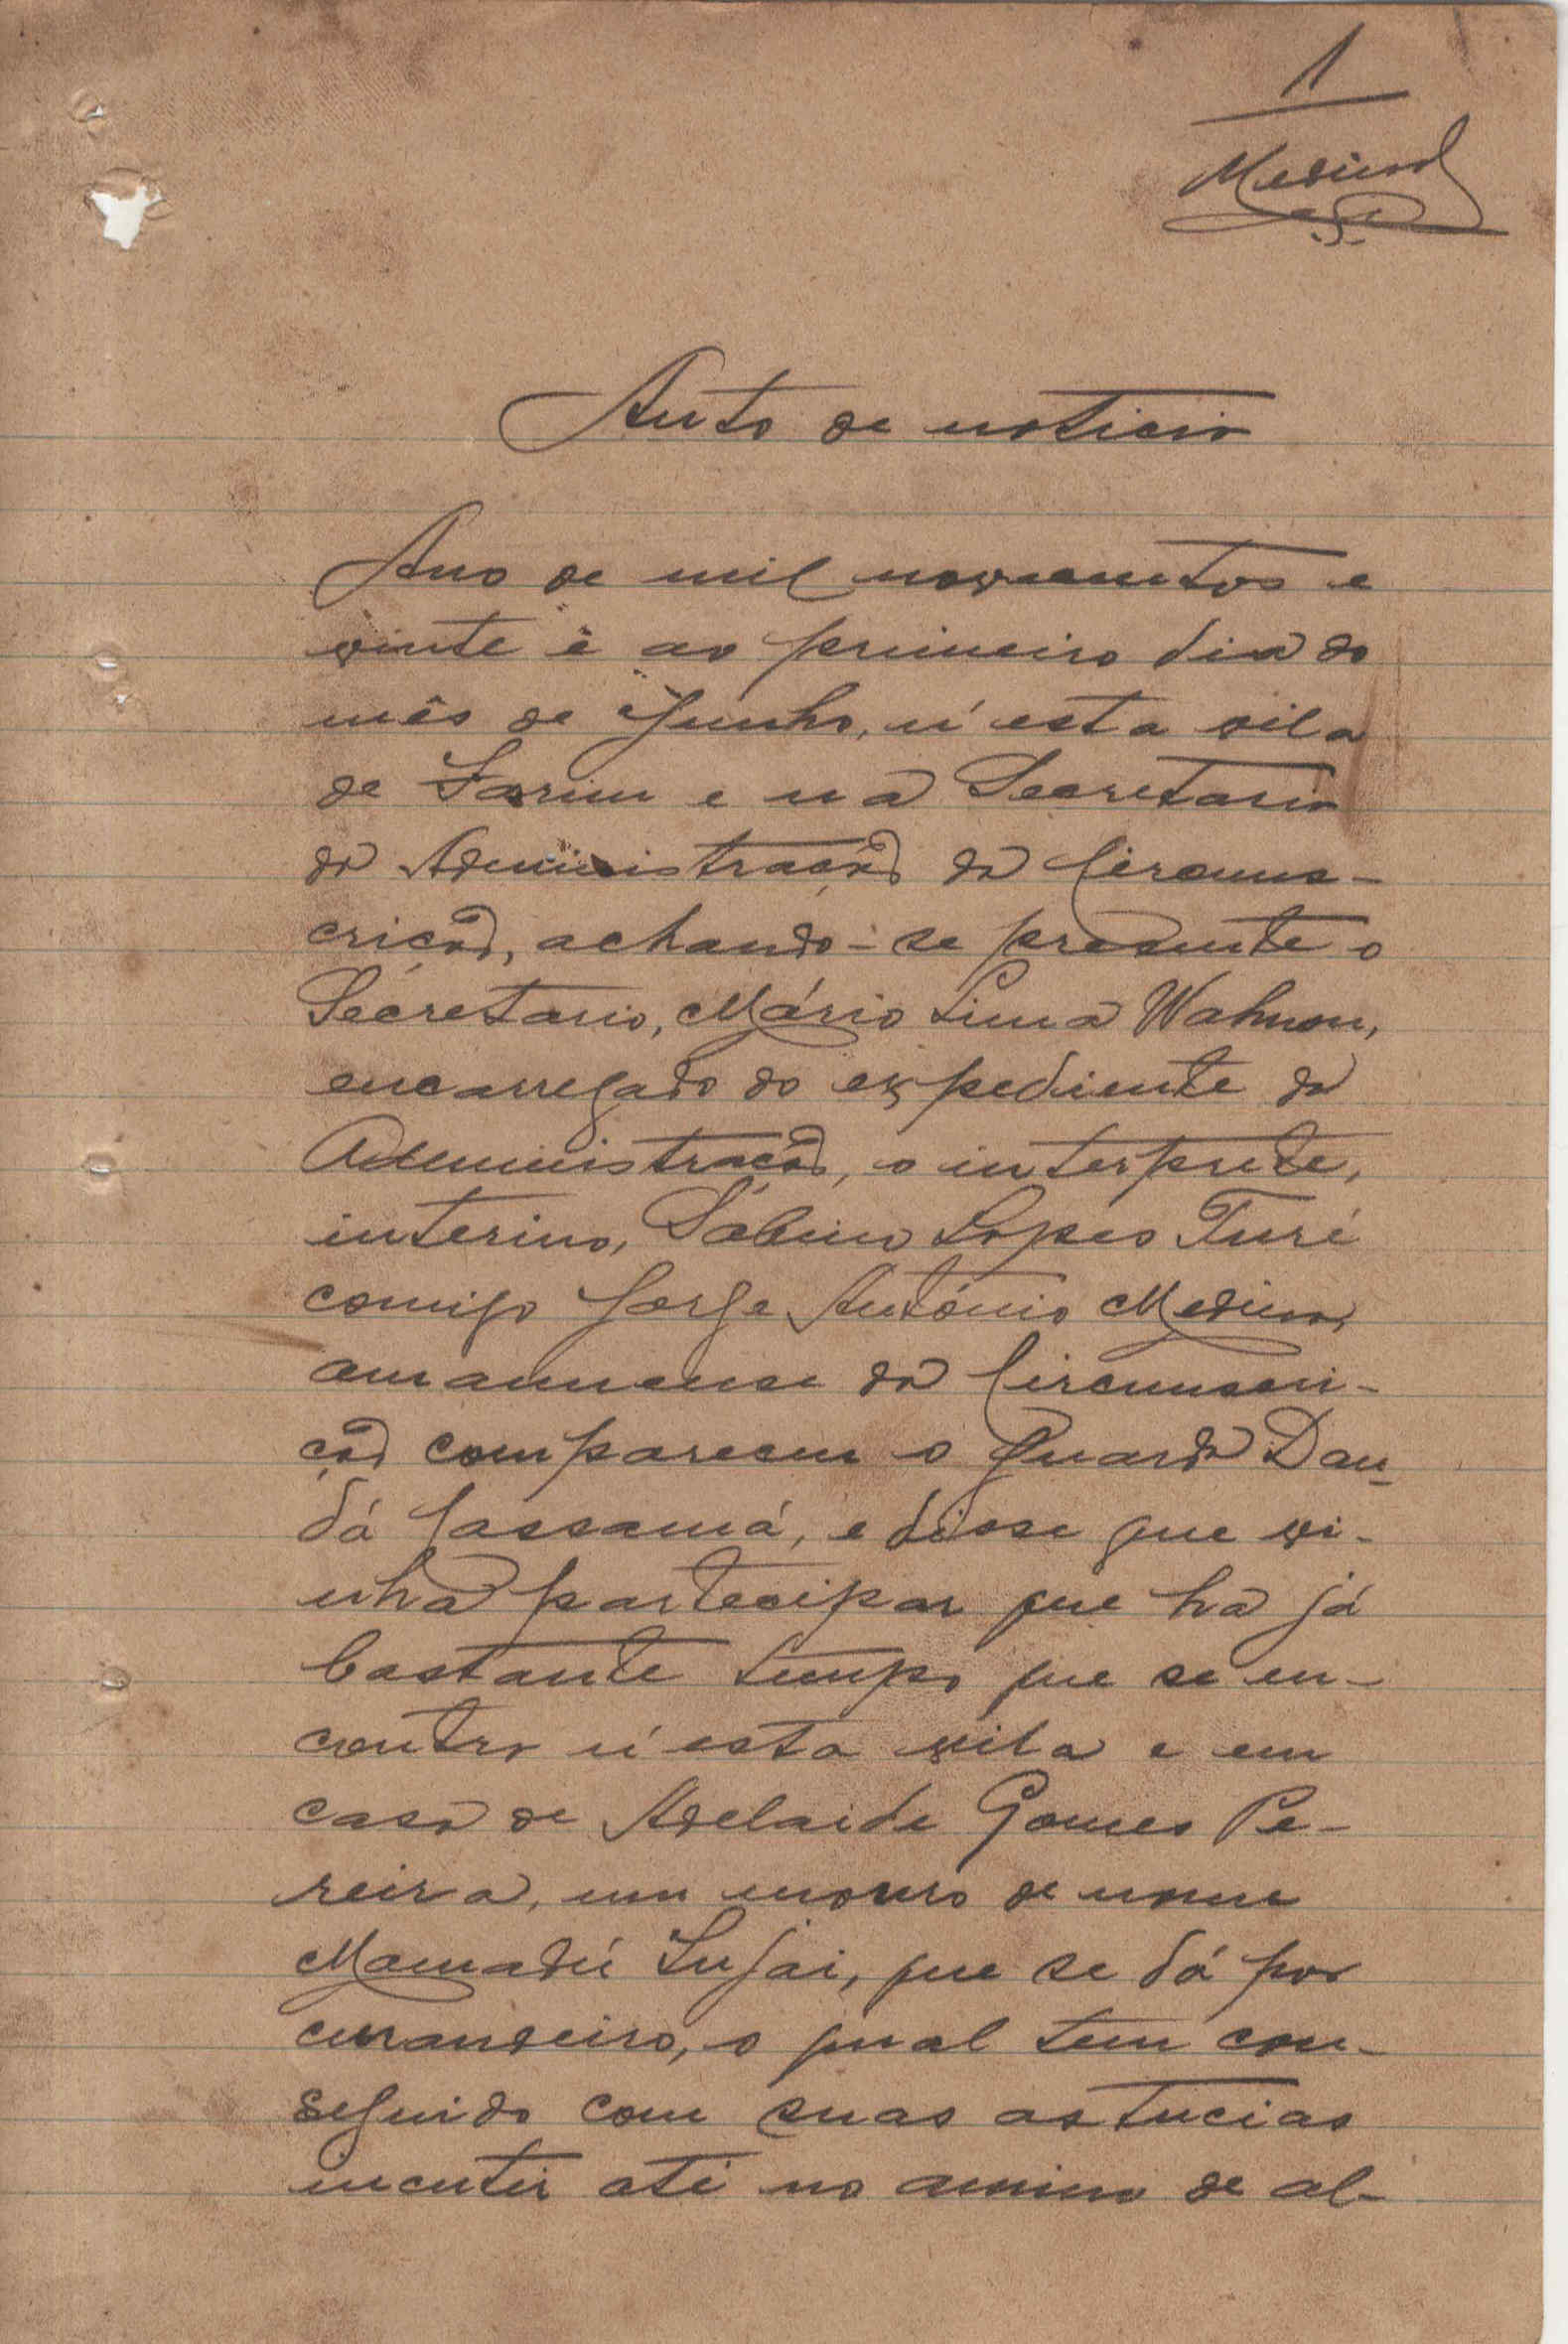 1
Medina
Auto de noticia
Ano de mil novecentos e
vinte e ao primeiro dia do
mês de Junho, n'esta vila
de Farim e na Secretaria
da Administração da Circuns-
crição, achando-se presente o
Secretario, Mário Lima Wahnon,
encarregado do expediente da
Administração, o interprete,
interino, Sabino Lopes Turé
comigo Jorge António Medina,
amanuense da Circunscri-
ção compareceu o Guarda Dau-
dá Cassamá, e disse que vi-
nha partecipar que ha já
bastante tempo que se en-
contra n'esta vila e em
casa de Adelaide Gomes Pe-
reira, um mouro de nome
Mamadú Sujai, que se dá por
curandeiro, o qual tem con-
seguido com suas astucias
incutir até no animo de al-